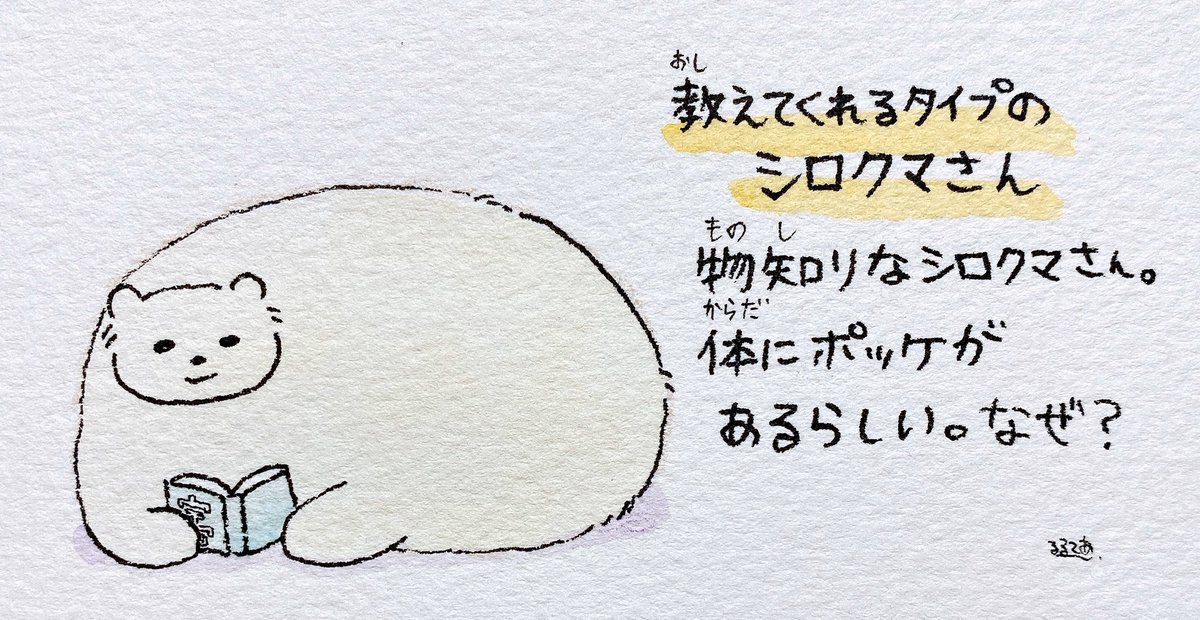 おし
教えてくれるタイプの
シロクマさん
もの し
物知りなシロクマさん。
からだ
体にポッケが
あるらしい。なぜ?
るるてあ